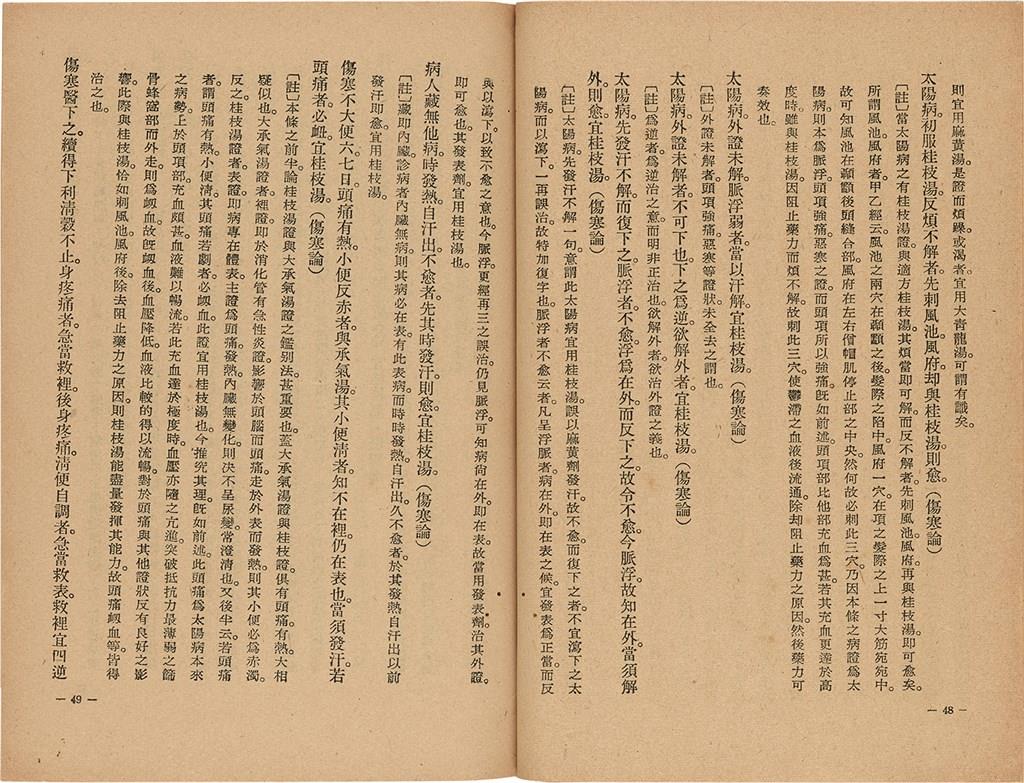 則宜用麻黃湯是證而煩躁或渴者宜用大青龍湯可謂有讖矣。
太陽病初服桂枝湯反煩不解者先刺風池風府却與桂枝湯則愈。(傷寒論)
〔註〕當太陽病之有桂枝湯證與適方桂枝湯其煩當即可解而反不解者先刺風池風府。再與桂枝湯即可愈矣。
所謂風池風府者甲乙經云風池之兩穴在顳顬之後髮際之陷中風府一穴在項之髮際之上一寸大筋宛宛中。
故可知風池在顳顬後頭縫合部風府在左右僧帽肌停止部之中央然何故必刺此三穴乃因本條之病證爲太
陽病則本爲脈浮頭項強痛惡寒之證而頭項所以強痛旣如前述頭項部比他部充血爲甚若其充血更達於高
度時雖與桂枝湯因阻止藥力而煩不解故刺此三穴使鬱滯之血液後流通除却阻止藥力之原因然後藥力可
奏效也。
太陽病外證未解脈浮弱者當以汗解宜桂枝湯。(傷寒論)
〔註〕外證未解者頭項強痛惡寒等證狀未全去之謂也。
太陽病外證未解者不可下也下之爲逆欲解外者宜桂枝湯。(傷寒論)
〔註〕爲逆者爲逆治之意而明非正治也欲解外者欲治外證之義也。
太陽病先發汗不解而復下之脈浮者不愈浮爲在外而反下之故令不愈今脈浮故知在外當須解
外則愈宜桂枝湯。(傷寒論)
〔註〕太陽病先發汗不解一句意謂此太陽病宜用桂枝湯誤以麻黃劑發汗故不愈而復下之者不宜瀉下之太
陽病而以瀉下。一再誤治故特加復字也。脈浮者不愈云者凡呈浮脈者病在外即在表之候宜發表爲正當而反
— 48 —
與以瀉下以致不愈之意也。今脈浮更經再三之誤治仍見脈浮可知病尙在外即在表故當用發表劑治其外證。
即可愈也其發表劑宜用桂枝湯也。
病人藏無他病時發熱自汗出不愈者先其時發汗則愈宜桂枝湯。(傷寒論)
〔註〕藏即內臟診病者內臟無病則其病必在表。有此表病而時時發熱自汗出久不愈者於其發熱自汗出以前
發汗即愈宜用桂枝湯。
傷寒不大便六七日頭痛有熱小便反赤者與承氣湯其小便淸者知不在裡仍在表也當須發汗若
頭痛者必衄宜桂枝湯。(傷寒論)
〔註〕本條之前半論桂枝湯證與大承氣湯證之鑑別法甚重要也蓋大承氣湯證與桂枝證俱有頭痛有熱大相
疑似也大承氣湯證者裡證即於消化管有急性炎證影響於頭腦而頭痛走於外表而發熱則其小便必爲赤濁。
反之桂枝湯證者表證即病專在體表主證爲頭痛發熱內臟無變化則決不呈尿變常澄淸也又後半云若頭痛
者謂頭痛有熱小便淸其頭痛若劇者必衄血此證宜用桂枝湯也今推究其理旣如前述此頭痛爲太陽病本來
之病勢上於頭項部充血頗甚血液難以暢流若此充血達於極度時血壓亦隨之亢進突破抵抗力最薄弱之篩
骨蜂窩部而外走則爲衄血故旣衄血後血壓降低血液比較的得以流暢對於頭痛與其他證狀反有良好之影
響此際與桂枝湯恰如刺風池風府後除去阻止藥力之原因則桂枝湯能盡量發揮其能力故頭痛衄血等皆得
治之也。
傷寒醫下之續得下利淸穀不止身疼痛者急當救裡後身疼痛淸便自調者急當救表救裡宜四逆
— 49 —